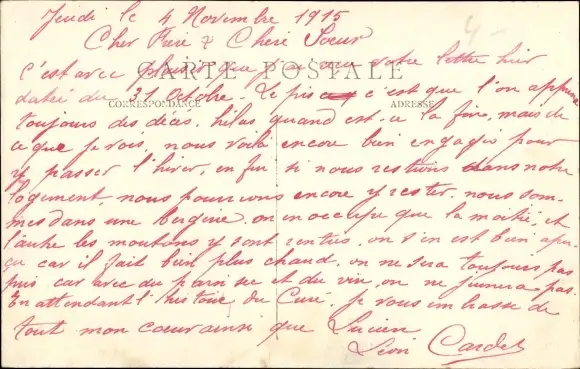 Jeudi le 4 Novembre 1915
Cher Frère & Chère Sœur
c'est avec plaisir que j'ai reçu votre lettre hier
CARTE POSTALE
daté du 31 Octobre. Le pis c'est que l'on apprenne
CORRESPONDANCE ADRESSE
toujours des décés, hélas quand est-ce la fin, mais de
ce que je vois, nous voilà encore bien engagés pour
y passer l'hiver, enfin si nous restions dans notre
logement, nous pourrions encore y rester, nous som-
mes dans une bergerie on en occupe que la moitié, et
l'autre les moutons y sont rentrés, on s'en est bien aper-
çu car il fait bien plus chaud, on ne sera toujours pas
puis car avec du pain sec et du vin, on ne fumera pas.
En attendant l'histoire du Curé, je vous embrasse de
tout mon cœur ainsi que Lucien
Léon Cardet